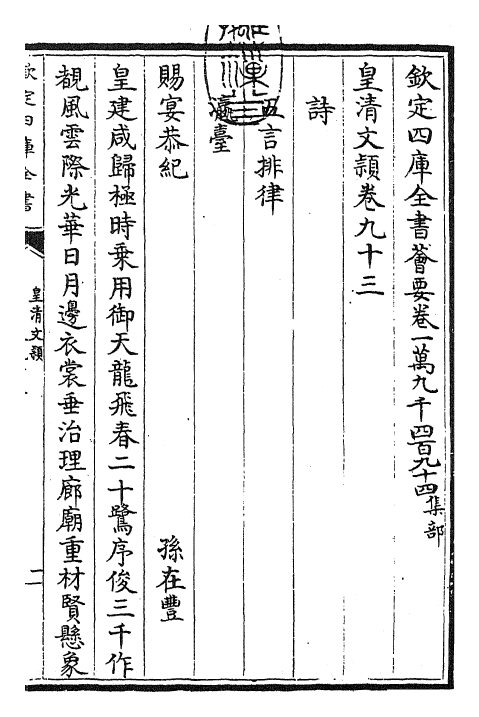 欽定四庫全書薈要卷一萬九千四百九十四集部
皇清文頴卷九十三
詩
五言排律
瀛臺
賜宴恭紀 孫在豐
皇建咸歸極時乗用御天龍飛春二十鷺序俊三千作
覩風雲際光華日月邊衣裳垂治理廊廟重材賢懸象
欽定四庫全書
皇清文頴